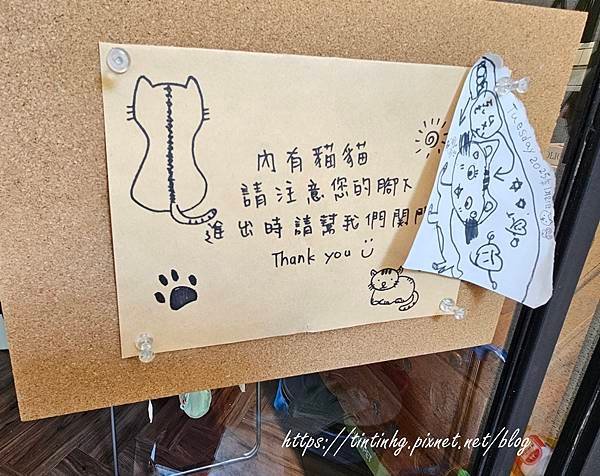 內有貓貓
請注意您的腳下
進出時請幫我們關門
Thank you
Tuesday 2025
https://tintinhg.pixnet.net/blog